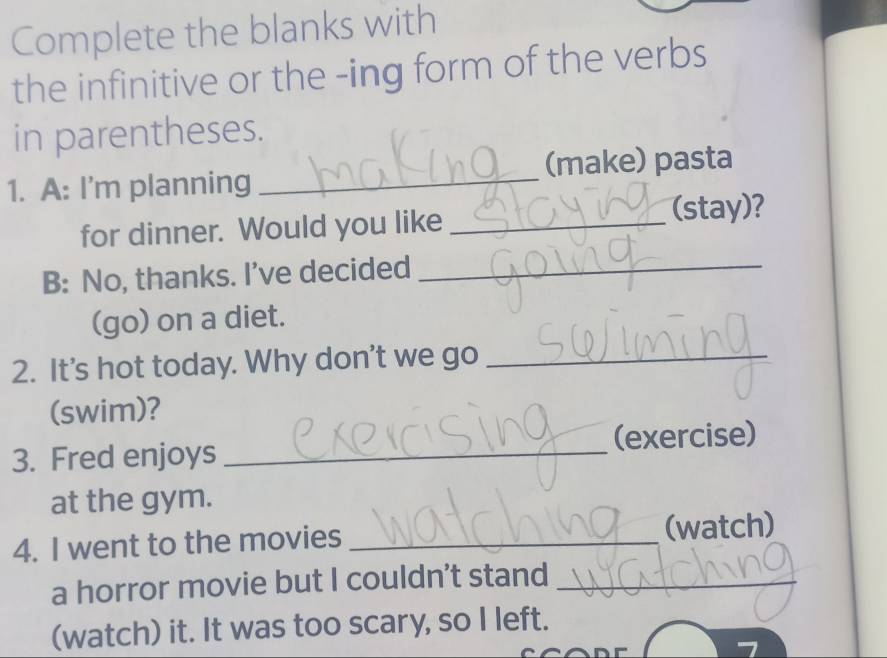 Complete the blanks with
the infinitive or the -ing form of the verbs
in parentheses.
1. A: I'm planning making (make) pasta
for dinner. Would you like staying (stay)?
B: No, thanks. I've decided going
(go) on a diet.
2. It's hot today. Why don't we go swiming
(swim)?
3. Fred enjoys exercising (exercise)
at the gym.
4. I went to the movies watching (watch)
a horror movie but I couldn't stand watching
(watch) it. It was too scary, so I left.
SCORE 7